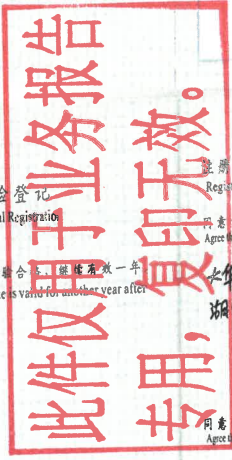 此件仅用于业务报告
专用，复印无效。
验登记
al Registration
验合格，继续有效一年
e is valid for another year after
注册
Regist
同意
Agree th
同意
Agree th